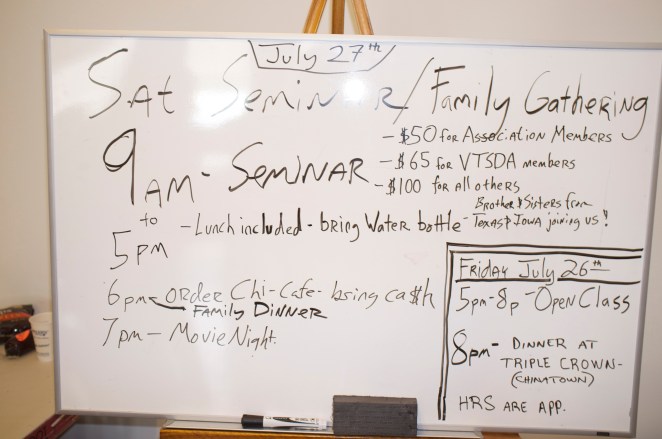 July 27th
Sat Seminar/Family Gathering
- $50 for Association Members
9AM - SEMINAR - $65 for VTSDA members
- $100 for all others
to
5pm
- Lunch included - bring Water bottle - Brother & Sisters from
Texas & Iowa joining us!
6pm - ORDER Chi-Cafe - bring ca$h
FAMILY DINNER
7pm - Movie Night.
FRIDAY July 26th
5pm-8p - Open Class
8pm - DINNER AT
TRIPLE CROWN -
(CHINATOWN)
HRS ARE APP.